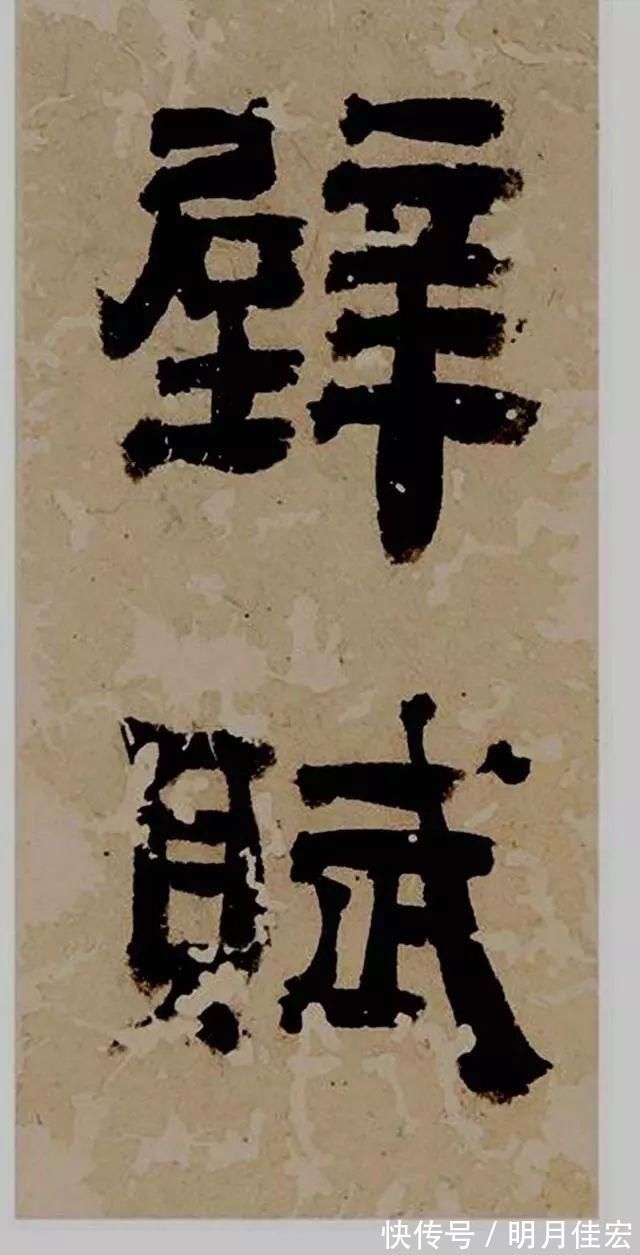 壁賦
快传号 / 明月佳宏